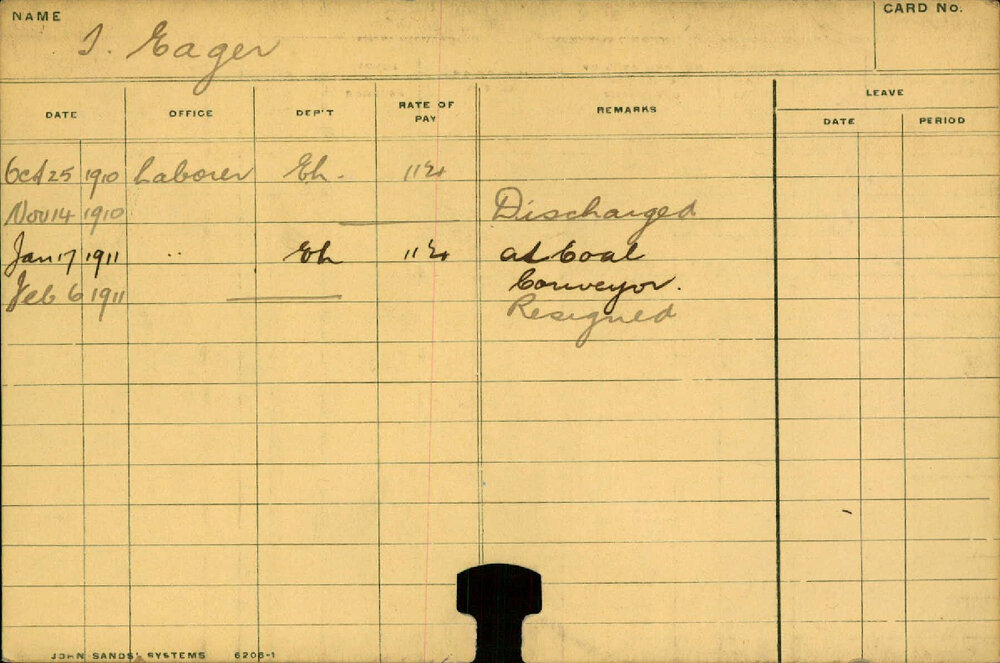 NAME
Eager
CARD No.
DATE OFFICE DEP'T RATE OF PAY REMARKS LEAVE
DATE PERIOD
Oct 25 1910 Laborer Eh.
Nov 14 1910 Discharged
Jan 17 1911 " Eh at Coal
Conveyor.
Feb 6 1911
Resigned
JOHN SANDS' SYSTEMS 6206-1